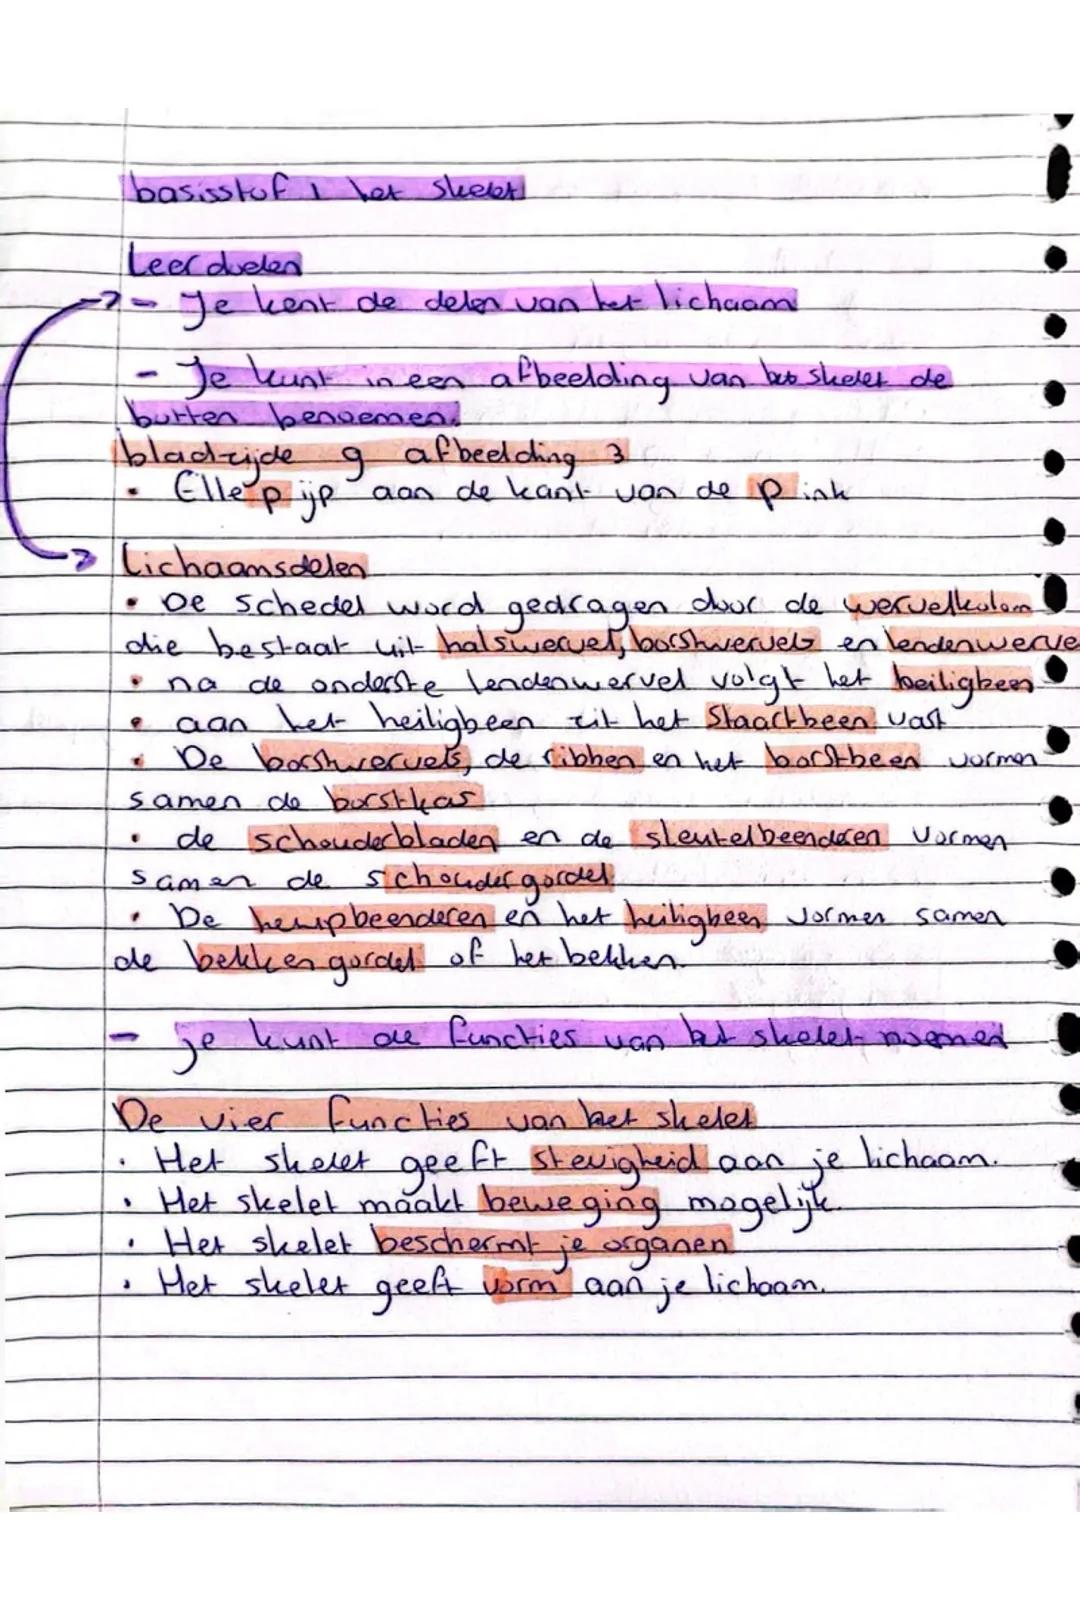 basisstof 1 het skelet
Leerdoelen
- Je kent de delen van het lichaam
- Je kunt in een afbeelding van het skelet de
botten benoemen.
bladzijde 9 afbeelding 3
• Ellepijp aan de kant van de pink
Lichaamsdelen
• De schedel word gedragen door de wervelkolom
die bestaat uit halswervel, borstwervels en lendenwerve
• na de onderste lendenwervel volgt het heiligbeen
• aan het heiligbeen zit het staartbeen vast
• De borstwervels, de ribben en het borstbeen vormen
samen de borstkas
• de schouderbladen en de sleutelbeenderen vormen
samen de schoudergordel
• De heupbeenderen en het heiligbeen vormen samen
de bekkengordel of het bekken.
- je kunt de functies van het skelet noemen
De vier functies van het skelet
• Het skelet geeft stevigheid aan je lichaam.
• Het skelet maakt beweging mogelijk.
• Het skelet beschermt je organen
• Het skelet geeft vorm aan je lichaam.